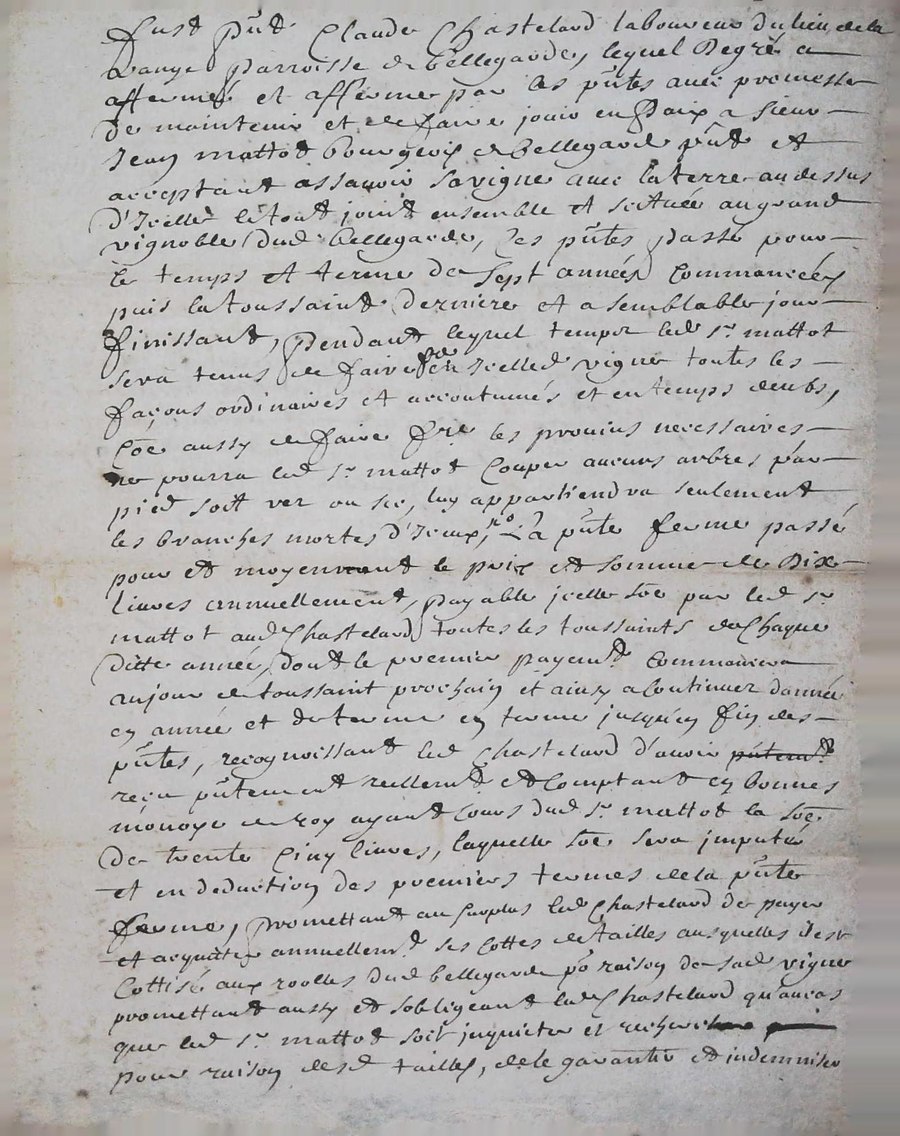 fust pnt Claude Chastelard laboureur du lieu de la
Grange parroisse de bellegarde, lequel Degré a
affermé et afferme par les pntes avec promesse
de maintenir et de faire jouir en paix a sieur
Jean mattot bourgeois de bellegarde pnt et
acceptant assavoir sa vigne avec la terre au dessus
d'Icelle le tout joint ensemble et scituée au grand
vignoble dud bellegarde, les pntes passé pour
le temps et terme de sept années Commancées
puis la toussaint derniere et a semblable jour
finissant, pendant lequel temps led sr mattot
sera tenus de faire en Icelle vigne toutes les
façons ordinaires et accoutumés et en temps deubs,
Coe aussy de faire fre les provins necessaires
ne pourra led sr mattot Couper aucuns arbres par
pied soit ver ou sec, luy appartiendra seulement
les branches mortes d'Iceux, La pnte ferme passé
pour et moyennant le prix et somme de Dix
livres annuellement, payable jcelle soe par led sr
mattot aud Chastelard toutes les toussaints de Chaque
ditte année, dont le premier payemt Commancera
au jour de toussaint prochain et ainsy a Continuer d'année
en année et de terme en terme jusqu'en fin des
pntes, recognoissant led Chastelard d'avoir
reçu pntement reellemt et Comptant en bonnes
monoye de roy ayant Cours dud sr mattot la soe
de trente Cinq livres, laquelle soe sera imputée
et en deduction des premiers termes de la pnte
ferme, promettant au surplus led Chastelard de payer
et acquiter annuellemt ses Cottes de tailles ausquelles il est
Cottisé aux roolles dud bellegarde po raison de sad vigne
promettant aussy et sobligeant led Chastelard qu'au cas
que led sr mattot soit inquieter et recherché
pour raison desd tailles, de le garantir et indemniser